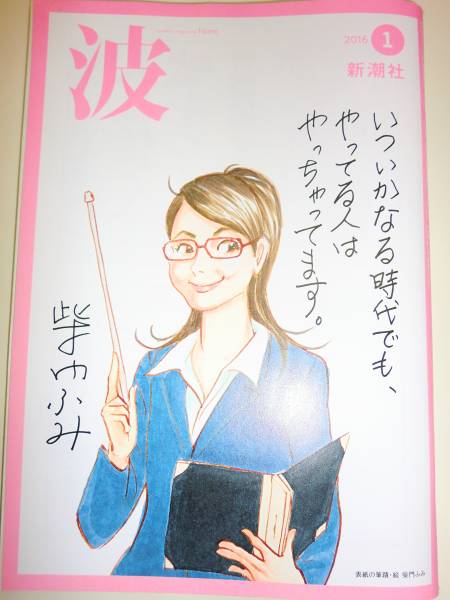 波
2016 1
新潮社
いついかなる時代でも、
やってる人は
やっちゃってます。
柴門ふみ
表紙の筆蹟・絵 柴門ふみ